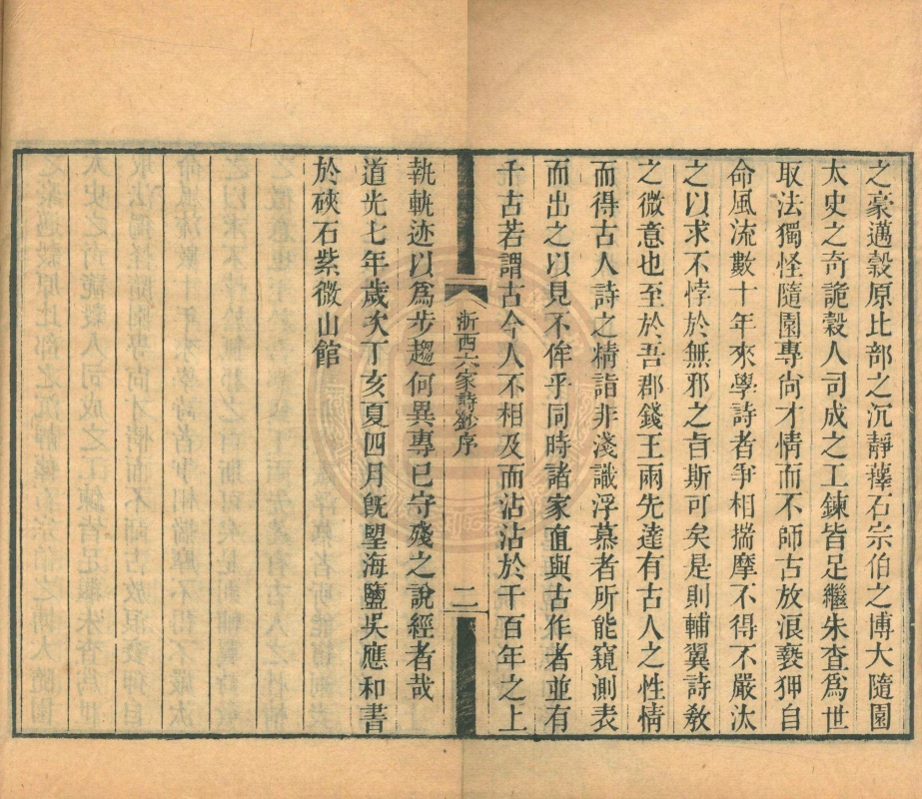 之豪邁穀原比部之沉靜蘀石宗伯之博大隨園
太史之奇詭穀人司成之工鍊皆足繼朱查爲世
取法獨怪隨園專尙才情而不師古放浪褻狎自
命風流數十年來學詩者爭相揣摩不得不嚴汰
之以求不悖於無邪之旨斯可矣是則輔翼詩敎
之微意也至於吾郡錢王兩先達有古人之性情
而得古人詩之精詣非淺識浮慕者所能窺測表
而出之以見不侔乎同時諸家直與古作者並有
千古若謂古今人不相及而沾沾於千百年之上
浙西六家詩鈔序
二
執軌迹以爲步趨何異專已守殘之說經者哉
道光七年歲次丁亥夏四月旣朢海鹽吳應和書
於硤石紫微山館